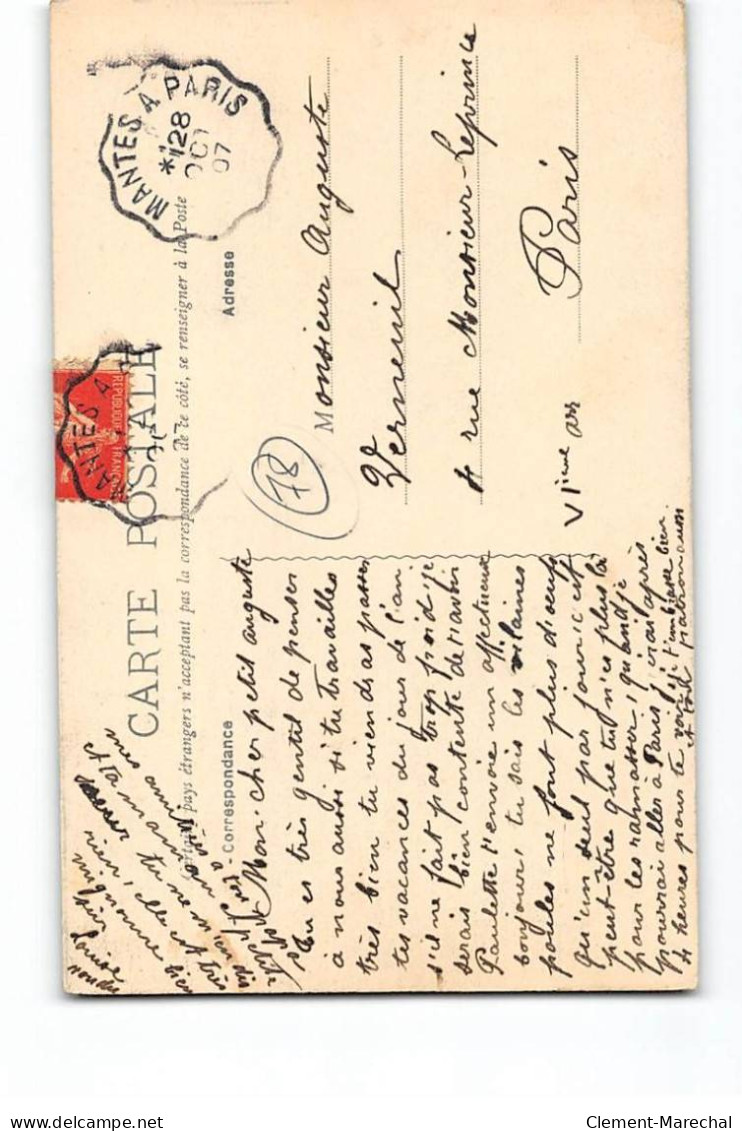 CARTE POSTALE
pays étrangers n'acceptant pas la correspondance de ce côté, se renseigner à la Poste
Correspondance
Adresse
MANTES A PARIS
*128
OCT
07
MANTES A
REPUBLIQUE FRANC
78
Monsieur Auguste
Verneuil
4 rue Monsieur-Leprince
Paris
VIème arr
Mon cher petit auguste
Tu es très gentil de penser
à nous aussi si tu travailles
très bien tu viendras passer
tes vacances du jour de l'an
s'il ne fait pas trop froid je
serais bien contente
Paulette t'envoie un affectueux
bonjour, tu sais les vilaines
poules ne font plus d'oeufs
qu'un seul par jour c'est
peut-être que tu n'es plus là
pour les ramasser, quand je
pourrai aller à Paris j'irai après
4 heures pour te voir, je t'embrasse bien
et ton patron aussi
mes amitiés à
et ta maman
tu ne m'en dis
rien, elle est très
mignonne bien
Louise
Clement-Marechal